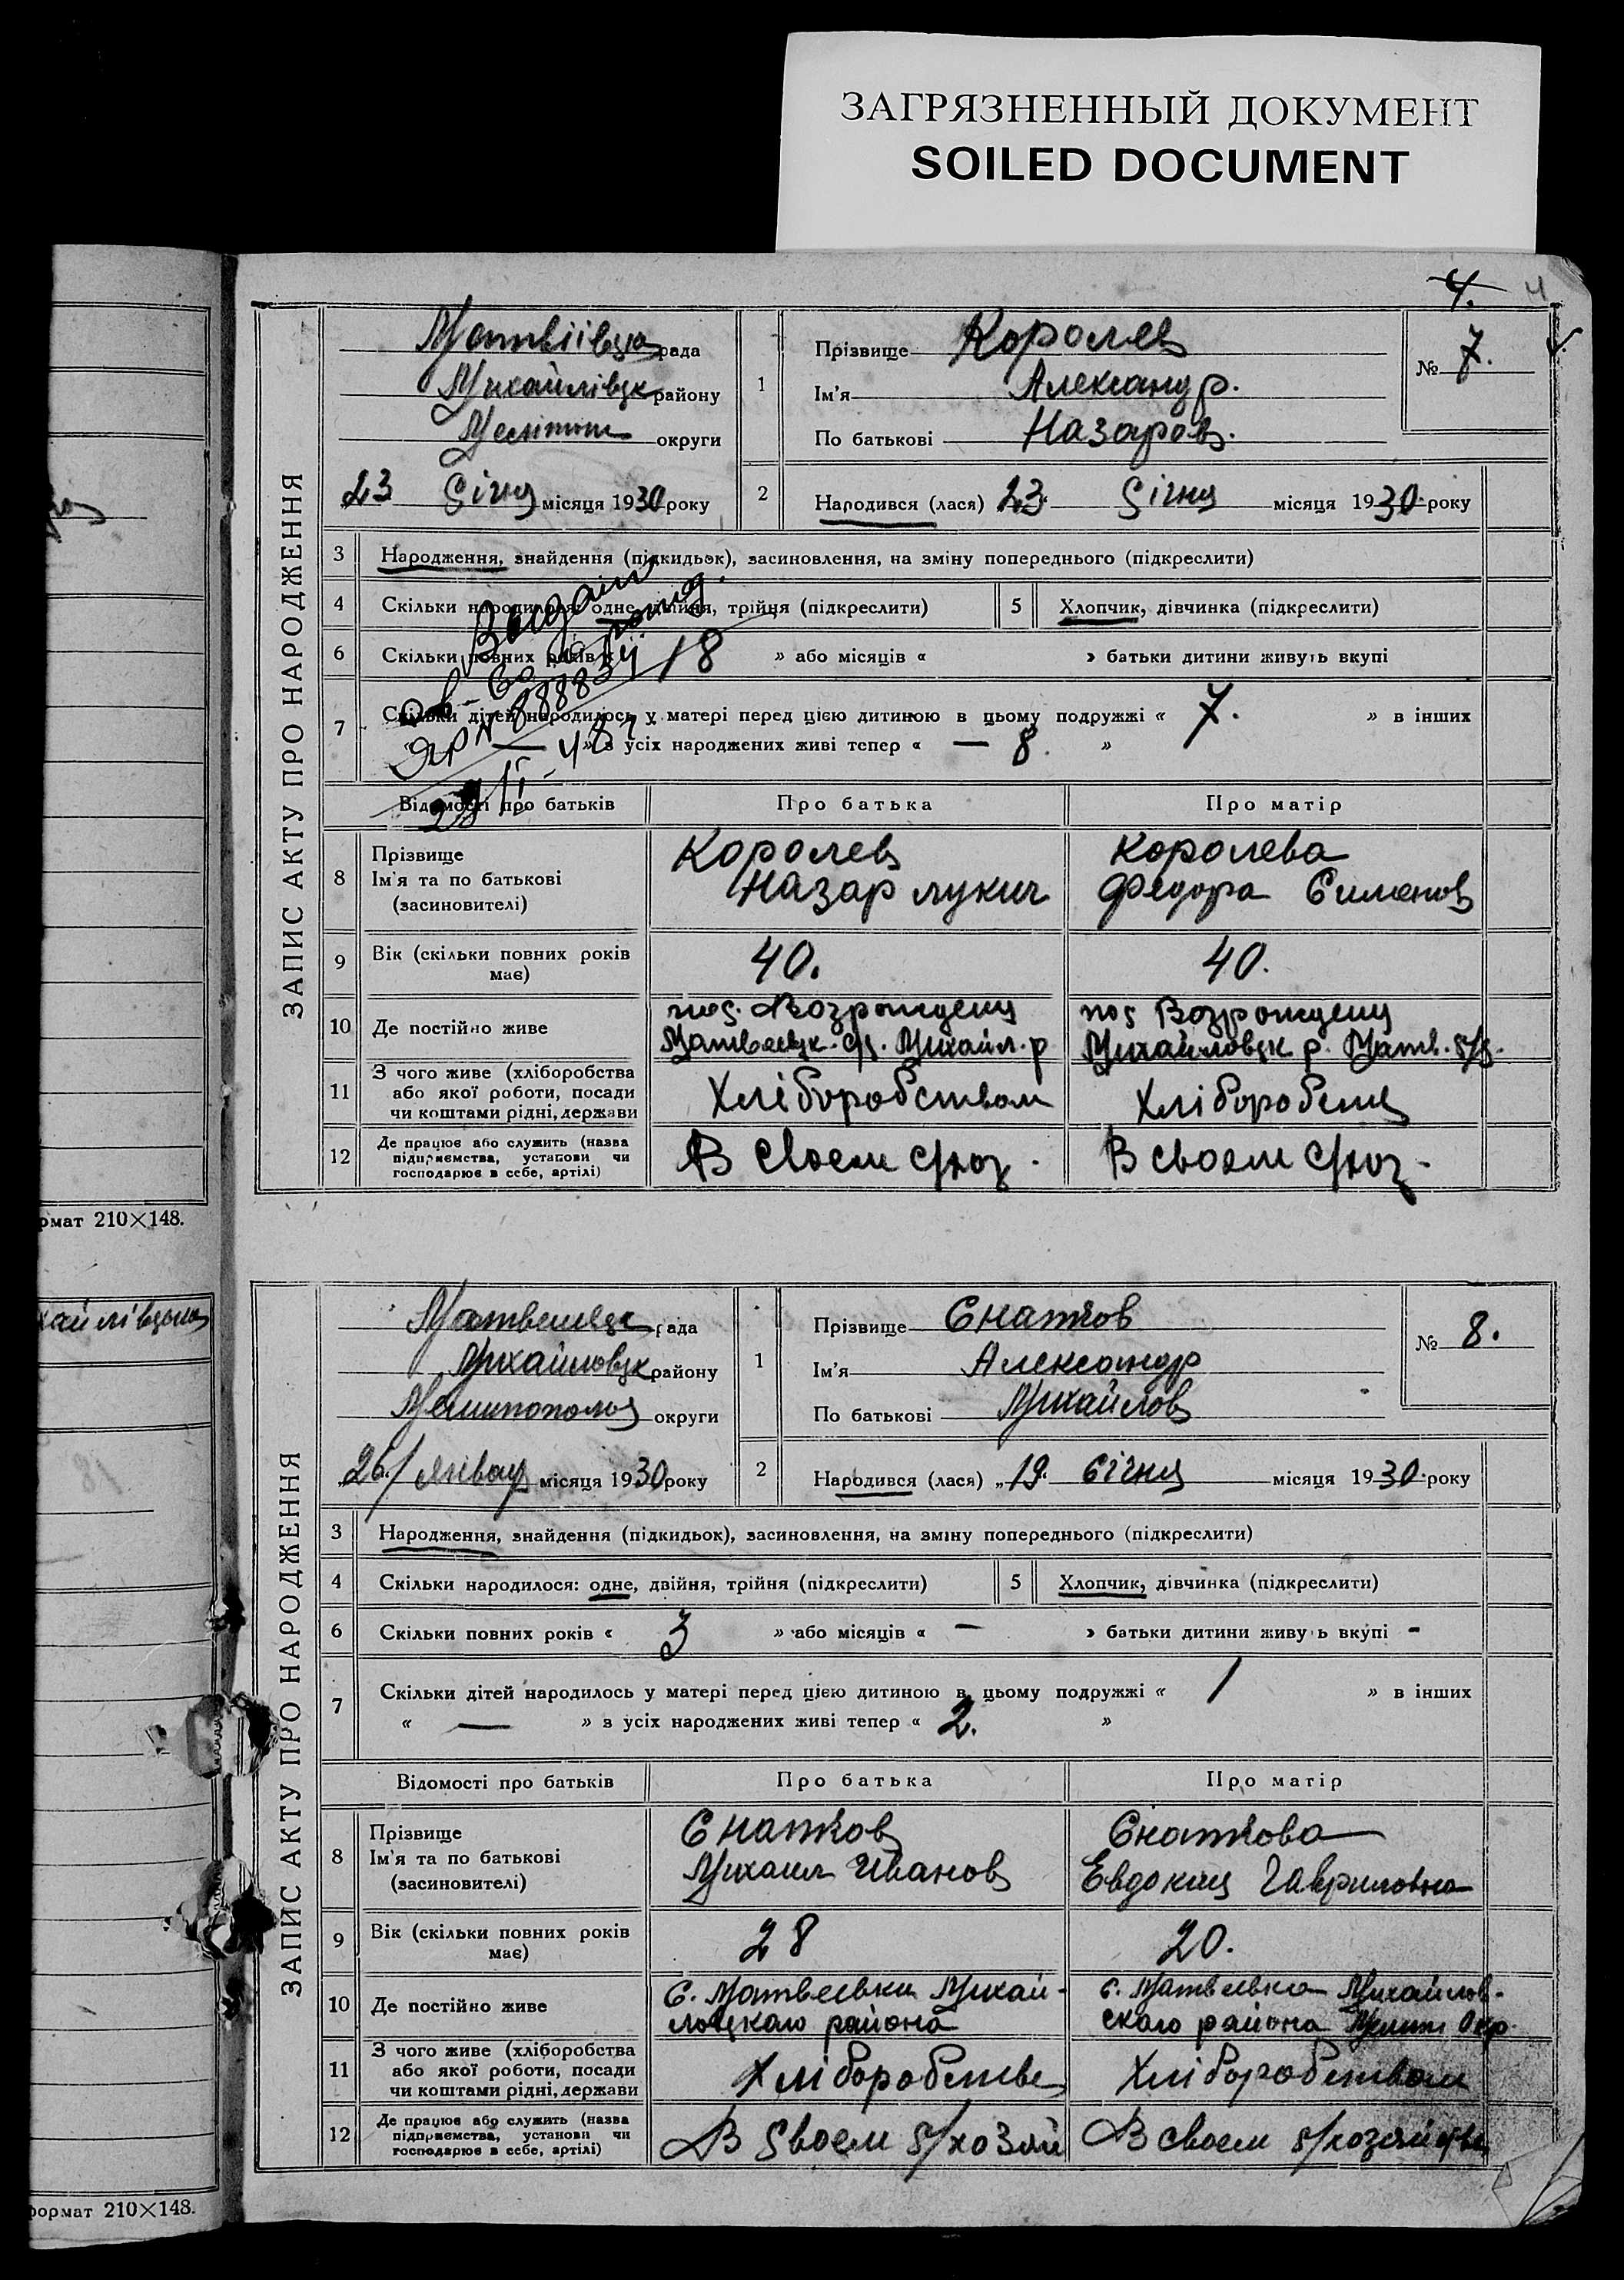 ЗАГРЯЗНЕННЫЙ ДОКУМЕНТ
SOILED DOCUMENT
4. 4
ЗАПИС АКТУ ПРО НАРОДЖЕННЯ
рада
Михайлівськ району
округи
23 Січня місяця 1930 року
1 Прізвище Королев
Ім'я Александр.
По батькові Назаров.
№ 7.
2 Народився (лася) 23. Січня місяця 1930 року
3 Народження, знайдення (підкидьок), засиновлення, на зміну попереднього (підкреслити)
4 Скільки народилося: одне, двійня, трійня (підкреслити) 5 Хлопчик, дівчинка (підкреслити)
6 Скільки повних років « 18 » або місяців « » батьки дитини живуть вкупі
7 Скільки дітей народилось у матері перед цією дитиною в цьому подружжі « 7. » в інших
« — » з усіх народжених живі тепер « — 8. »
Відомості про батьків Про батька Про матір
8 Прізвище Ім'я та по батькові (засиновителі)
Королев Назар Лукич
Королева Федора Симонов
9 Вік (скільки повних років має) 40. 40.
10 Де постійно живе
пос. Возрождени Михайл. р
пос Возрождени Михайловск р. Матв. с/с.
11 З чого живе (хліборобства або якої роботи, посади чи коштами рідні, держави
Хліборобством Хліборобств
12 Де працює або служить (назва підприємства, установи чи господарює в себе, артілі)
В своем с/хоз. В своем с/хоз.
рмат 210×148.
хайлівської
ЗАПИС АКТУ ПРО НАРОДЖЕННЯ
Матвеевск рада
Михайловск району
Мелитополь округи
26/ січня місяця 1930 року
1 Прізвище Снатков
Ім'я Александр
По батькові Михайлов
№ 8.
2 Народився (лася) „19. Січня місяця 1930 року
3 Народження, знайдення (підкидьок), засиновлення, на зміну попереднього (підкреслити)
4 Скільки народилося: одне, двійня, трійня (підкреслити) 5 Хлопчик, дівчинка (підкреслити)
6 Скільки повних років « 3 » або місяців « — » батьки дитини живуть вкупі -
7 Скільки дітей народилось у матері перед цією дитиною в цьому подружжі « 1 » в інших
« — » з усіх народжених живі тепер « 2. »
Відомості про батьків Про батька Про матір
8 Прізвище Ім'я та по батькові (засиновителі)
Снатков Михаил Иванов
Снаткова Евдокия Гавриловна
9 Вік (скільки повних років має) 28 20.
10 Де постійно живе
С. Матвеевки Михайловскаго района
с. Матвеевка Михайловскаго района Мелит Окр.
11 З чого живе (хліборобства або якої роботи, посади чи коштами рідні, держави
Хліборобстве Хліборобством
12 Де працює або служить (назва підприємства, установи чи господарює в себе, артілі)
В своем с/хозяй В своем с/хозяйстве
формат 210×148.